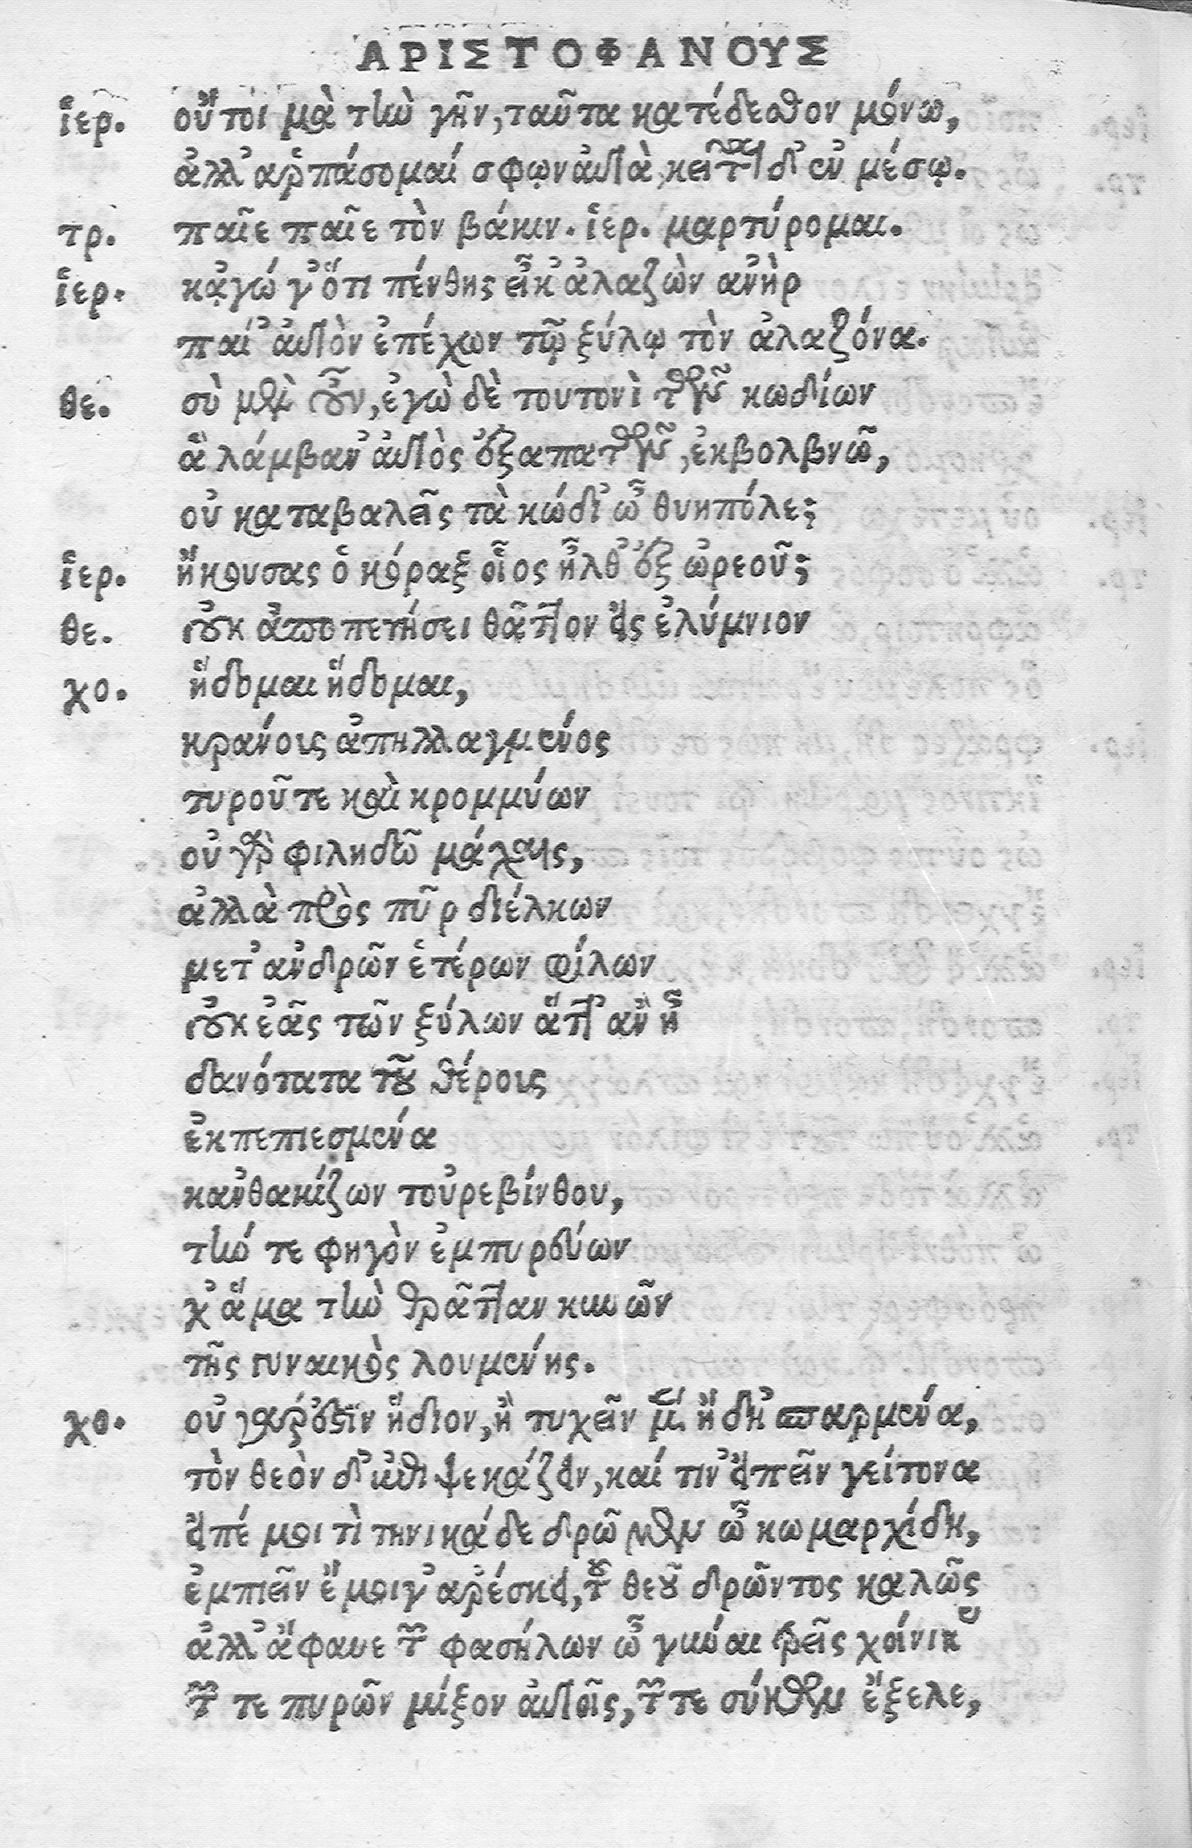 ΑΡΙΣΤΟΦΑΝΟΥΣ
ἱερ. οὔτοι μὰ τὴν γῆν, ταῦτα κατέδεσθον μόνω,
ἀλλ' ἁρπάσομαί σφῳν αὐτὰ, κεῖται δ' ἐν μέσῳ.
τρ. παῖε παῖε τὸν βάκιν. ἱερ. μαρτύρομαι.
ἱερ. κᾀγώ γ' ὅτι πένθης εἶ κ' ἀλαζὼν ἀνὴρ
παῖ' αὐτὸν ἐπέχων τῷ ξύλῳ τὸν ἀλαζόνα.
θε. σὺ μὲν οὖν, ἐγὼ δὲ τουτονὶ τῶν κωδίων
ἃ λάμβαν' αὐτὸς ἐξαπατῶν, ἐκβολβνῶ,
οὐ καταβαλεῖς τὰ κώδι' ὦ θυηπόλε;
ἱερ. ἤκουσας ὁ κόραξ οἷος ἦλθ' ἐξ ὠρεοῦ;
θε. οὐκ ἀποπετήσει θᾶττον εἰς ἐλύμνιον
χο. ἥδομαι ἥδομαι,
κράνοις ἀπηλλαγμένος
τυροῦ τε καὶ κρομμύων
οὐ γὰρ φιληδῶ μάχαις,
ἀλλὰ πρὸς πῦρ διέλκων
μετ' ἀνδρῶν ἑτέρων φίλων
οὐκ ἐᾶς τῶν ξύλων ἅττ' ἂν ᾖ
δανότατα τοῦ θέρους
ἐκπεπιεσμένα
κανθακίζων τοὐρεβίνθου,
τήν τε φηγὸν ἐμπυρεύων
χ' ἅμα τὴν θρᾶτταν κινῶν
τῆς γυναικὸς λουμένης.
χο. οὐ γὰρ ἐσθ' ἥδιον, ἢ τυχεῖν μὲν ἤδη σπαρμένα,
τὸν θεὸν δ' ἐπιψεκάζειν, καί τιν' εἰπεῖν γείτονα
εἰπέ μοι τὶ τηνικάδε δρῶμεν ὦ κωμαρχίδη,
ἐμπιεῖν ἔμοιγ' ἀρέσκει, τοῦ θεοῦ δρῶντος καλῶς
ἀλλ' ἄφαυε τῶν φασήλων ὦ γύναι τρεῖς χοίνικας
τῶν τε πυρῶν μίξον αὐτοῖς, τῶν τε σύκων ἔξελε,